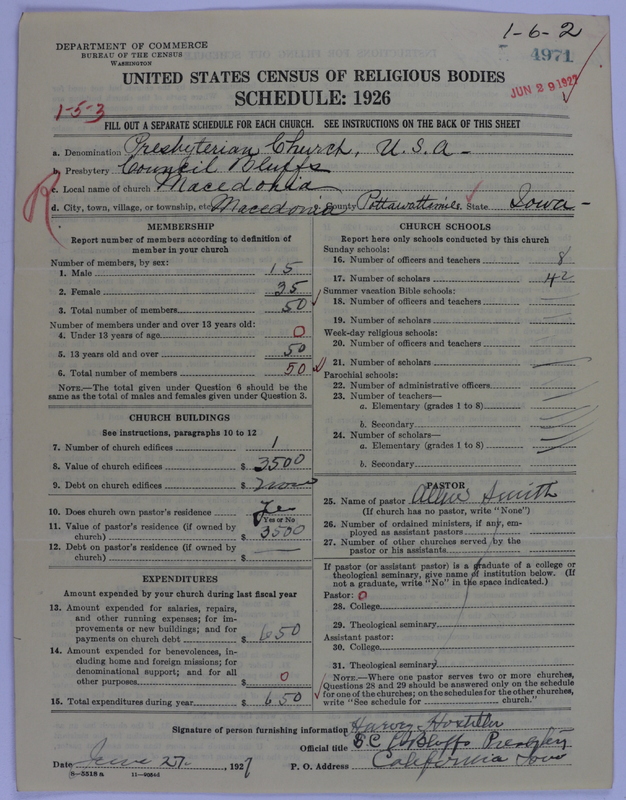 1-6-2
DEPARTMENT OF COMMERCE
BUREAU OF THE CENSUS
WASHINGTON
4971
JUN 29 1927
UNITED STATES CENSUS OF RELIGIOUS BODIES
SCHEDULE: 1926
1-5-3
FILL OUT A SEPARATE SCHEDULE FOR EACH CHURCH. SEE INSTRUCTIONS ON THE BACK OF THIS SHEET
a. Denomination Presbyterian Church, U.S.A-
b. Presbytery Council Bluffs
c. Local name of church Macedonia
R
d. City, town, village, or township, etc. Macedonia County Pottawattimie State Iowa-
MEMBERSHIP
Report number of members according to definition of
member in your church
Number of members, by sex:
1. Male 15
2. Female 35
3. Total number of members 50
Number of members under and over 13 years old:
4. Under 13 years of age 0
5. 13 years old and over 50
6. Total number of members 50
NOTE.—The total given under Question 6 should be the
same as the total of males and females given under Question 3.
CHURCH BUILDINGS
See instructions, paragraphs 10 to 12
7. Number of church edifices 1
8. Value of church edifices $ 3500
9. Debt on church edifices $ none
10. Does church own pastor's residence Yes
Yes or No
11. Value of pastor's residence (if owned by
church) $ 3500
12. Debt on pastor's residence (if owned by
church) $
EXPENDITURES
Amount expended by your church during last fiscal year
13. Amount expended for salaries, repairs,
and other running expenses; for im-
provements or new buildings; and for
payments on church debt $ 650
14. Amount expended for benevolences, in-
cluding home and foreign missions; for
denominational support; and for all
other purposes $ 0
15. Total expenditures during year $ 650
CHURCH SCHOOLS
Report here only schools conducted by this church
Sunday schools:
16. Number of officers and teachers 8
17. Number of scholars 42
Summer vacation Bible schools:
18. Number of officers and teachers
19. Number of scholars
Week-day religious schools:
20. Number of officers and teachers
21. Number of scholars
Parochial schools:
22. Number of administrative officers
23. Number of teachers—
a. Elementary (grades 1 to 8)
b. Secondary
24. Number of scholars—
a. Elementary (grades 1 to 8)
b. Secondary
PASTOR
25. Name of pastor Smith
(If church has no pastor, write "None")
26. Number of ordained ministers, if any, em-
ployed as assistant pastors
27. Number of other churches served by the
pastor or his assistants
If pastor (or assistant pastor) is a graduate of a college or
theological seminary, give name of institution below. (If
not a graduate, write "No" in the space indicated.)
Pastor: 0
28. College
29. Theological seminary
Assistant pastor:
30. College
31. Theological seminary
NOTE.—Where one pastor serves two or more churches,
Questions 28 and 29 should be answered only on the schedule
for one of the churches; on the schedules for the other churches,
write "See schedule for church."
Signature of person furnishing information Harvey
Official title S.C. Bluffs Presbytery
Date June 27, 1927 P. O. Address California Iowa
8-5518 a